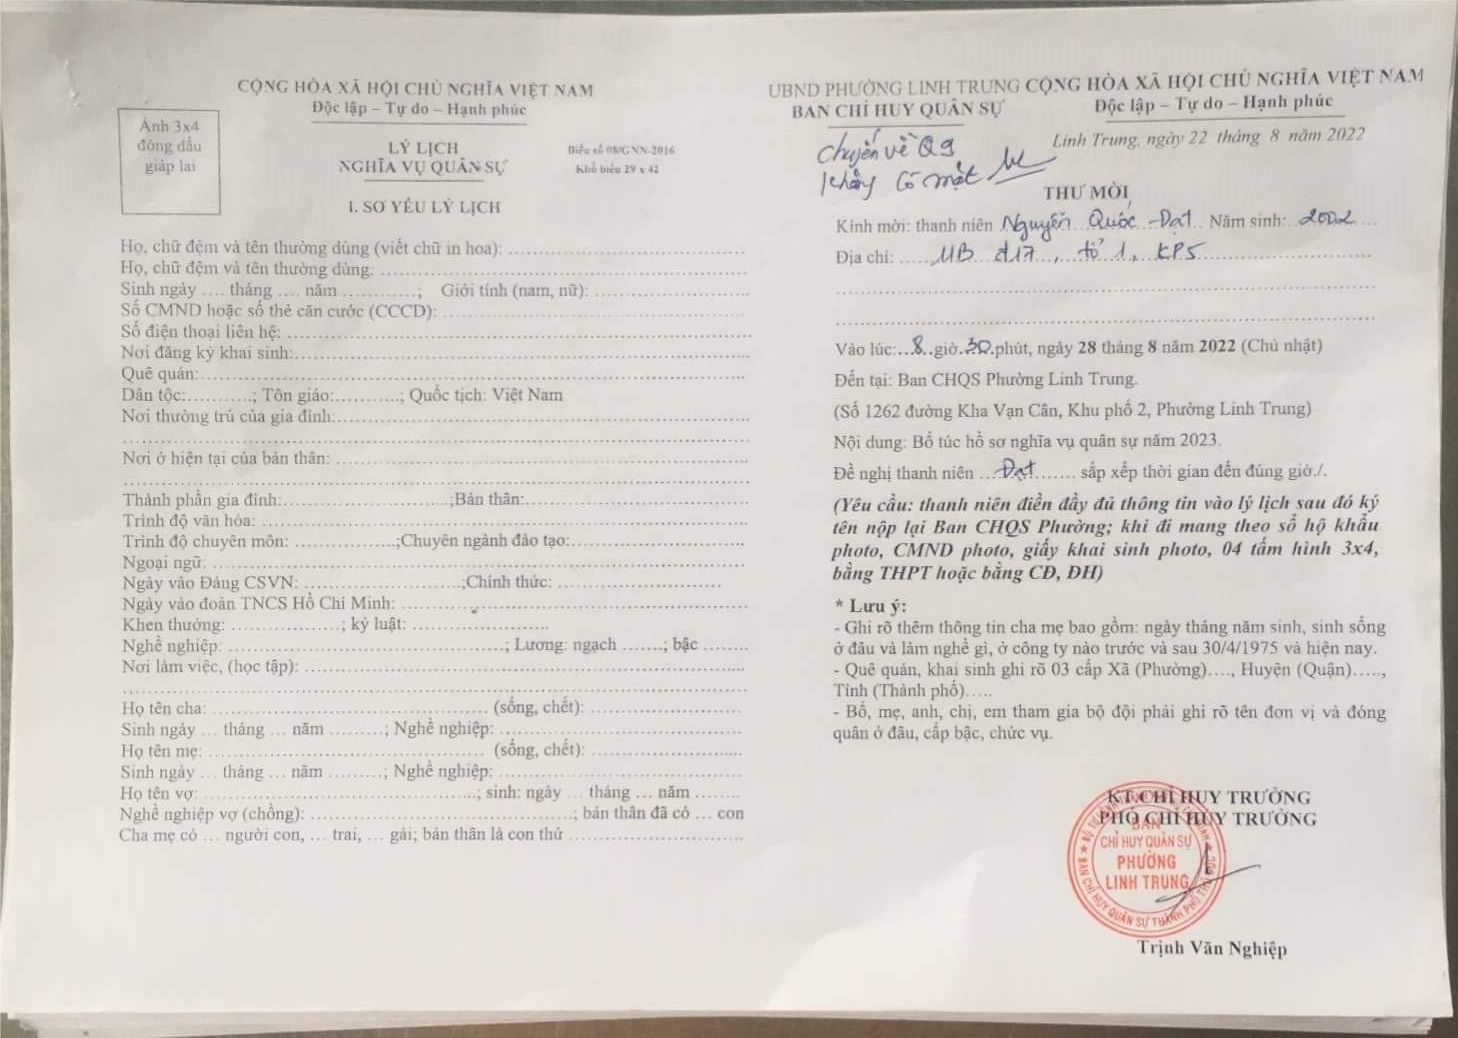 CỘNG HÒA XÃ HỘI CHỦ NGHĨA VIỆT NAM
Độc lập – Tự do – Hạnh phúc
Ảnh 3x4
đóng dấu
giáp lai
LÝ LỊCH
NGHĨA VỤ QUÂN SỰ
Biểu số 08/GNN-2016
Khổ biểu 29 x 42
I. SƠ YẾU LÝ LỊCH
Họ, chữ đệm và tên thường dùng (viết chữ in hoa): ..............................
Họ, chữ đệm và tên thường dùng: ..............................
Sinh ngày .... tháng .... năm ............; Giới tính (nam, nữ): ..............................
Số CMND hoặc số thẻ căn cước (CCCD): ..............................
Số điện thoại liên hệ: ..............................
Nơi đăng ký khai sinh:..............................
Quê quán:..............................
Dân tộc:...........; Tôn giáo:...........; Quốc tịch: Việt Nam
Nơi thường trú của gia đình:..............................
..............................
Nơi ở hiện tại của bản thân: ..............................
..............................
Thành phần gia đình:..............................;Bản thân:..............................
Trình độ văn hóa: ..............................
Trình độ chuyên môn: ..................;Chuyên ngành đào tạo:..............................
Ngoại ngữ: ..............................
Ngày vào Đảng CSVN: ..............................;Chính thức: ..............................
Ngày vào đoàn TNCS Hồ Chí Minh: ..............................
Khen thưởng: ....................; kỷ luật: ........................
Nghề nghiệp: ..............................; Lương: ngạch .......; bậc ........
Nơi làm việc, (học tập): ..............................
..............................
Họ tên cha: .............................. (sống, chết): ..............................
Sinh ngày ... tháng ... năm .........; Nghề nghiệp: ..............................
Họ tên mẹ: .............................. (sống, chết): ..............................
Sinh ngày ... tháng ... năm .........; Nghề nghiệp: ..............................
Họ tên vợ: ..............................; sinh: ngày ... tháng ... năm ........
Nghề nghiệp vợ (chồng): ..............................; bản thân đã có ... con
Cha mẹ có ... người con, ... trai, ... gái; bản thân là con thứ ..............................
UBND PHƯỜNG LINH TRUNG CỘNG HÒA XÃ HỘI CHỦ NGHĨA VIỆT NAM
BAN CHỈ HUY QUÂN SỰ Độc lập – Tự do – Hạnh phúc
Linh Trung, ngày 22 tháng 8 năm 2022
chuyển về Q9
không có mặt
THƯ MỜI
Kính mời: thanh niên Nguyễn Quốc Đạt Năm sinh: 2002
Địa chỉ: 11B đ17, tổ 1, KP5
..............................
..............................
Vào lúc:...8..giờ.30.phút, ngày 28 tháng 8 năm 2022 (Chủ nhật)
Đến tại: Ban CHQS Phường Linh Trung.
(Số 1262 đường Kha Vạn Cân, Khu phố 2, Phường Linh Trung)
Nội dung: Bổ túc hồ sơ nghĩa vụ quân sự năm 2023.
Đề nghị thanh niên ...Đạt....... sắp xếp thời gian đến đúng giờ./.
(Yêu cầu: thanh niên điền đầy đủ thông tin vào lý lịch sau đó ký
tên nộp lại Ban CHQS Phường; khi đi mang theo sổ hộ khẩu
photo, CMND photo, giấy khai sinh photo, 04 tấm hình 3x4,
bằng THPT hoặc bằng CĐ, ĐH)
* Lưu ý:
- Ghi rõ thêm thông tin cha mẹ bao gồm: ngày tháng năm sinh, sinh sống
ở đâu và làm nghề gì, ở công ty nào trước và sau 30/4/1975 và hiện nay.
- Quê quán, khai sinh ghi rõ 03 cấp Xã (Phường)...., Huyện (Quận).....,
Tỉnh (Thành phố).....
- Bố, mẹ, anh, chị, em tham gia bộ đội phải ghi rõ tên đơn vị và đóng
quân ở đâu, cấp bậc, chức vụ.
KT.CHỈ HUY TRƯỞNG
PHÓ CHỈ HUY TRƯỞNG
BAN
CHỈ HUY QUÂN SỰ
PHƯỜNG
LINH TRUNG
BAN CHỈ HUY QUÂN SỰ THÀNH PHỐ THỦ ĐỨC
Trịnh Văn Nghiệp